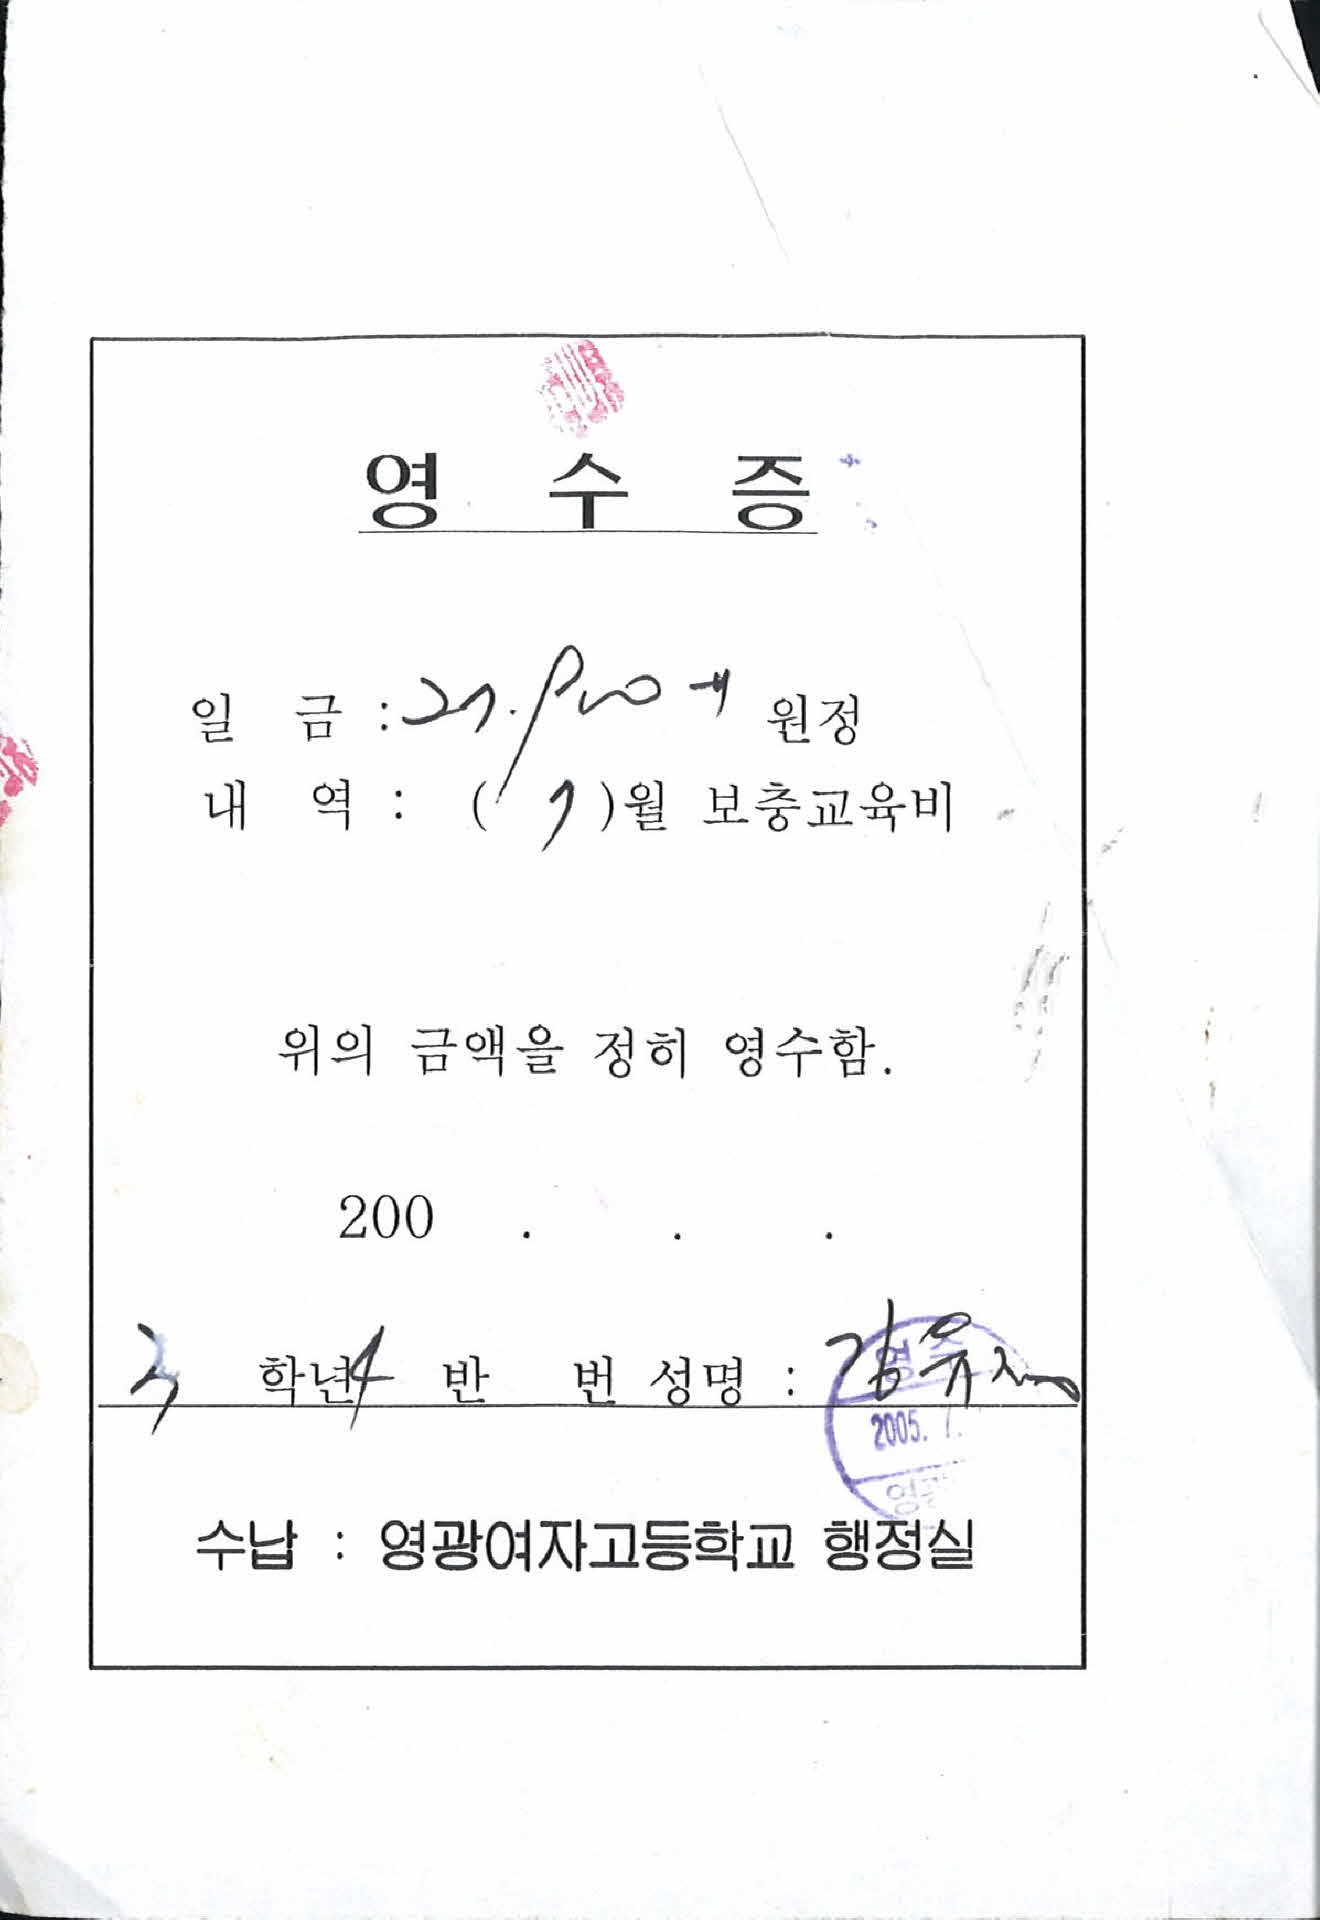 영 수 증
일 금 : 원정
내 역 : ( 7 )월 보충교육비
위의 금액을 정히 영수함.
200 . . .
3 학년 4 반 번 성명 : 김유
영수
2005. 7.
영광
수납 : 영광여자고등학교 행정실